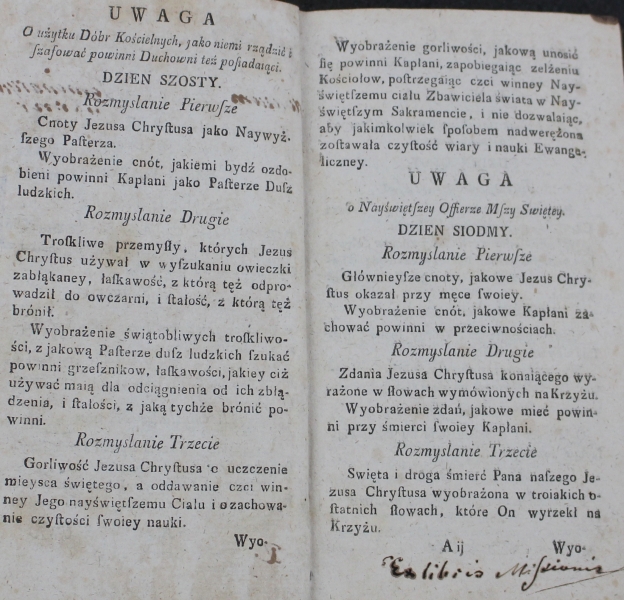 UWAGA
O użytku Dóbr Kościelnych, jako niemi rządzić i
ſzafować powinni Duchowni też poſiadaiąci.
DZIEN SZOSTY.
Rozmyslanie Pierwſze
Cnoty Jezusa Chryſtusa jako Naywyż-
ſzego Paſterza.
Wyobrażenie cnót, jakiemi bydź ozdo-
bieni powinni Kapłani jako Paſterze Duſz
ludzkich.
Rozmyslanie Drugie
Troſkliwe przemyſły, których Jezus
Chryſtus używał w wyſzukaniu owieczki
zabłąkaney, łaſkawość, z którą tęż odpro-
wadził do owczarni, i ſtałość, z którą też
brónił.
Wyobrażenie świątobliwych troſkliwo-
ści, z jakową Paſterze duſz ludzkich ſzukać
powinni grzeſznikow, łaſkawości, jakiey ciż
używać maią dla odciągnienia od ich zbłą-
dzenia, i ſtałości, z jaką tychże brónić po-
winni.
Rozmyslanie Trzecie
Gorliwość Jezusa Chryſtusa o uczczenie
mieysca świętego, a oddawanie czci win-
ney Jego nayświętſzemu Ciału i o zachowa-
nie czyſtości ſwoiey nauki.
Wyo-
Wyobrażenie gorliwości, jakową unosić
ſię powinni Kapłani, zapobiegaiąc zelżeniu
Kościołow, poſtrzegaiąc czci winney Nay-
świętſzemu ciału Zbawiciela świata w Nay-
świętſzym Sakramencie, i nie dozwalaiąc,
aby jakimkolwiek ſpoſobem nadwerężona
zoſtawała czyſtość wiary i nauki Ewange-
liczney.
UWAGA
o Nayświętſzey Offierze Mſzy Swiętey.
DZIEN SIODMY.
Rozmyslanie Pierwſze
Głównieyſze cnoty, jakowe Jezus Chry-
ſtus okazał przy męce ſwoiey.
Wyobrażenie cnót, jakowe Kapłani za-
chować powinni w przeciwnościach.
Rozmyslanie Drugie
Zdania Jezusa Chryſtusa konaiącego wy-
rażone w ſłowach wymówionych na Krzyżu.
Wyobrażenie zdań, jakowe mieć powin-
ni przy śmierci ſwoiey Kapłani.
Rozmyslanie Trzecie
Swięta i droga śmierć Pana naſzego Je-
zusa Chryſtusa wyobrażona w troiakich o-
ſtatnich ſłowach, które On wyrzekł na
Krzyżu.
A ij Wyo-
Ex libris Miſsionis